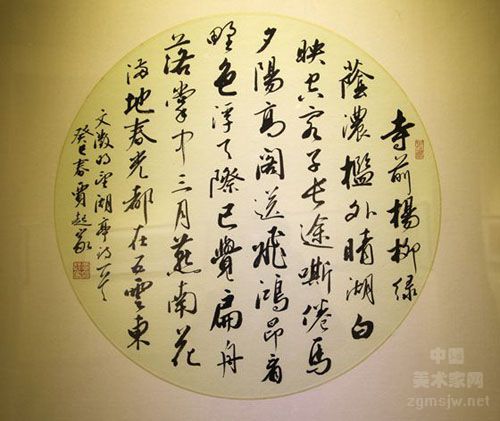 寺前楊柳綠
蔭濃檻外晴湖白
映空客子長途嘶倦馬
夕陽高閣送飛鴻即看
野色浮天際已覺扁舟
落掌中三月燕南花
滿地春光都在五雲東
文徵明望湖亭詩一首
癸巳春賈起家
中国
美术家网
zgmsjw.net